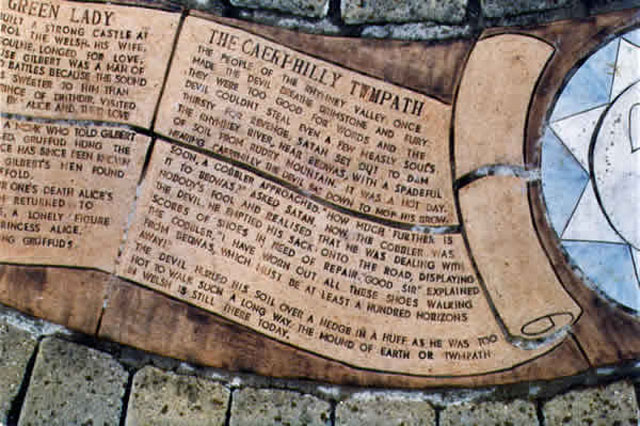 GREEN LADY
BUILT A STRONG CASTLE AT
THE WELSH. HIS WIFE,
LONGED FOR LOVE,
GILBERT WAS A MAN OF
BECAUSE THE SOUND
SWEETER TO HIM THAN
OF DITHER, VISITED
ALICE AND THEY LOVE
A MONK WHO TOLD GILBERT
GRUFFUD HUNG THE
HAS SINCE BEEN KNOWN
GILBERT'S MEN FOUND
ONE'S DEATH ALICE'S
RETURNED TO
A LONELY FIGURE
PRINCESS ALICE,
GRUFFUD'S
THE CAERPHILLY TWMPATH
THE PEOPLE OF THE RHYMNEY VALLEY ONCE
MADE THE DEVIL BREATHE BRIMSTONE AND FURY.
THEY WERE TOO GOOD FOR WORDS AND THE
DEVIL COULDN'T STEAL EVEN A FEW MEASLY SOULS
THIRSTY FOR REVENGE, SATAN SET OUT TO DAM
THE RHYMNEY RIVER, NEAR BEDWAS, WITH A SPADEFUL
OF SOIL FROM RUDRY MOUNTAIN. IT WAS A HOT DAY.
NEARING CAERPHILLY THE DEVIL SAT DOWN TO MOP HIS BROW.
SOON, A COBBLER APPROACHED. "HOW MUCH FURTHER IS
IT TO BEDWAS?" ASKED SATAN. NOW, THE COBBLER WAS
NOBODY'S FOOL AND REALISED THAT HE WAS DEALING WITH
THE DEVIL. HE EMPTIED HIS SACK ONTO THE ROAD, DISPLAYING
SCORES OF SHOES IN NEED OF REPAIR. "GOOD SIR" EXPLAINED
THE COBBLER, "I HAVE WORN OUT ALL THESE SHOES WALKING
FROM BEDWAS, WHICH MUST BE AT LEAST A HUNDRED HORIZONS
AWAY!"
THE DEVIL HURLED HIS SOIL OVER A HEDGE IN A HUFF AS HE WAS TOO
HOT TO WALK SUCH A LONG WAY. THE MOUND OF EARTH OR TWMPATH
IN WELSH IS STILL THERE TODAY.